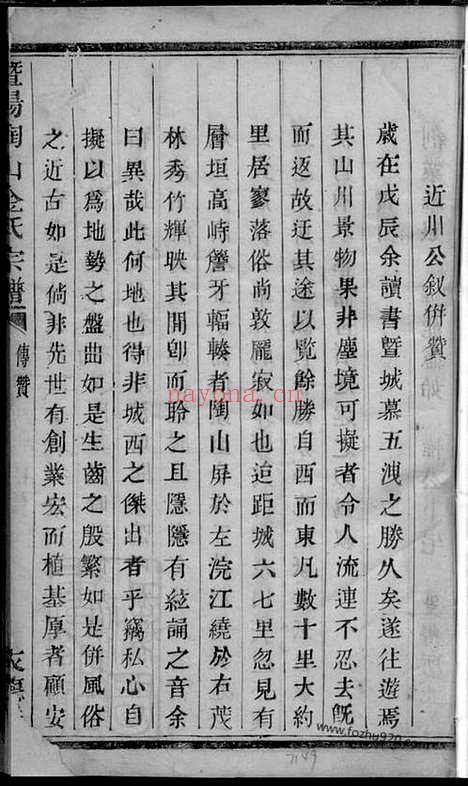 近川公叙併贊
歲在戊辰余讀書暨城慕五洩之勝久矣遂往遊焉
其山川景物果非塵境可擬者令人流連不忍去旣
而返故迂其途以覽餘勝自西而東凡數十里大約
里居寥落俗尚敦龐寂如也迨距城六七里忽見有
層垣高峙簷牙輻輳者陶山屏於左浣江繞於右茂
林秀竹輝映其間卽而聆之且隱隱有絃誦之音余
曰異哉此何地也得非城西之傑出者乎竊私心自
擬以爲地勢之盤曲如是生齒之殷繁如是併風俗
之近古如是倘非先世有創業宏而植基厚者顧安
暨陽陶山金氏宗譜
傳贊
nayona.cn
www.fozhu920.com